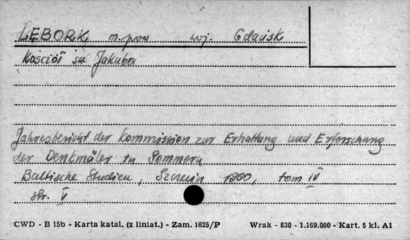 LĘBORK, m. pow. woj. Gdańsk
Kościół św. Jakuba
Jahresbericht der Kommission zur Erhaltung und Erforschung
der Denkmäler in Pommern
Baltische Studien, Szczecin 1900, tom IV
str. V
CWD - B 15b - Karta katal. (z liniat.) - Zam. 1625/P Wrak - 830 - 1.169.000 - Kart. 5 kl. A1